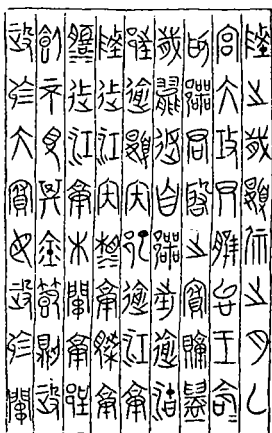 陵之歲夏㞕之月乙
宮大攻尹脽台王命
為鄂君啟之府賡鑄
歲罷返自鄂市逾油
逾夏内邔逾江庚
陵上江内湘庚䑣庚
上江庚木關庚郢
不見其金節則政
政於大府毋政於關